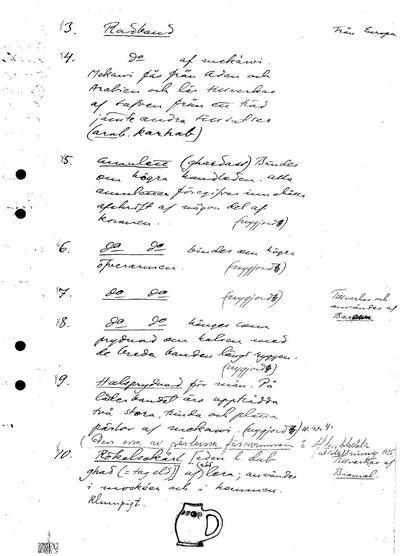 3. Radband
Från Europa
4. do af mekawi.
Mekawi fås från Aden och
Arabien och lär tillverkas
af saften från ett träd
jämte andra
(arab. karhab)
5. Amulett (ghardass) Bindes
om högra handleden. Alla
amuletter föregifvas innehålla
afskrift af någon del af
koranen. (nygjord)
6. do do bindes om högra
öfverarmen. (nygjord)
7. do do (nygjord)
Tillverkas och
användes af
8. do do hänges som
prydnad om halsen med
de breda banden längs ryggen.
(nygjord)
9. Halsprydnad för män. På
läderbandet äro uppträdda
två stora, runda och platta
pärlor af mekawi. (nygjord) se nr 4.
(Den ena av pärlorna försvunnen
10. Rökelsekärl [eden l. dab
Tillverkas af
ghad (= tag eld)] af lera; användes
i moskéer och i hemmen.
Klumpigt.